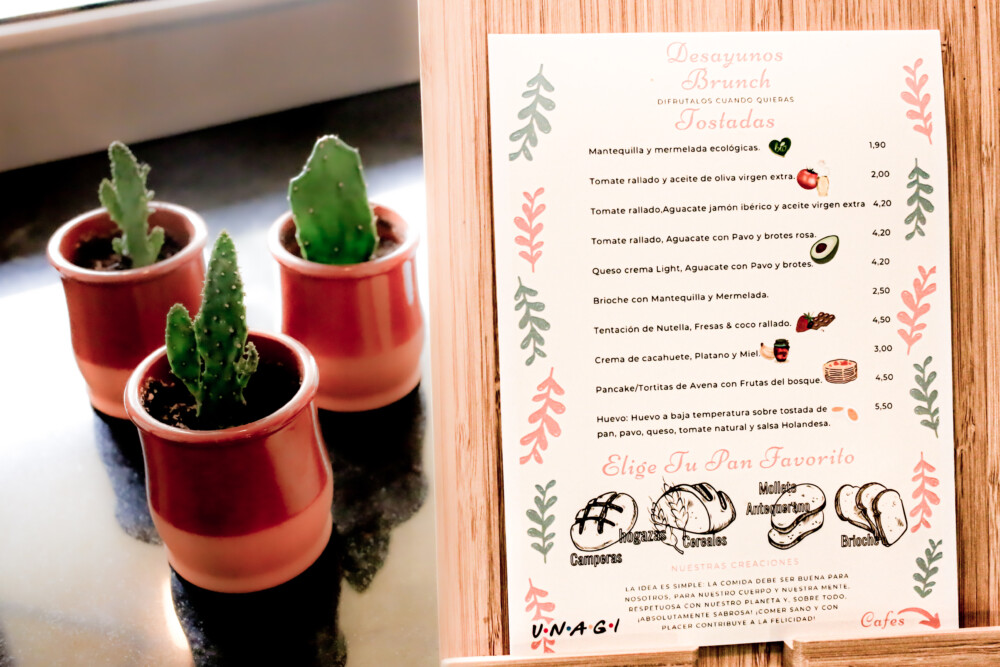 Desayunos
Brunch
DIFRUTALOS CUANDO QUIERAS
Tostadas
Mantequilla y mermelada ecológicas. bio 1,90
Tomate rallado y aceite de oliva virgen extra. 2,00
Tomate rallado,Aguacate jamón ibérico y aceite virgen extra 4,20
Tomate rallado, Aguacate con Pavo y brotes rosa. 4,20
Queso crema Light, Aguacate con Pavo y brotes. 4,20
Brioche con Mantequilla y Mermelada. 2,50
Tentación de Nutella, Fresas & coco rallado. 4,50
Crema de cacahuete, Platano y Miel. 3,00
Pancake/Tortitas de Avena con Frutas del bosque. 4,50
Huevo: Huevo a baja temperatura sobre tostada de 5,50
pan, pavo, queso, tomate natural y salsa Holandesa.
Elige Tu Pan Favorito
Camperas
hogazas
Cereales
Mollete
Antequerano
Brioche
NUESTRAS CREACIONES
LA IDEA ES SIMPLE: LA COMIDA DEBE SER BUENA PARA
NOSOTROS, PARA NUESTRO CUERPO Y NUESTRA MENTE,
RESPETUOSA CON NUESTRO PLANETA Y, SOBRE TODO,
¡ABSOLUTAMENTE SABROSA! ¡COMER SANO Y CON
PLACER CONTRIBUYE A LA FELICIDAD!
U•N•A•G•I
Cafes